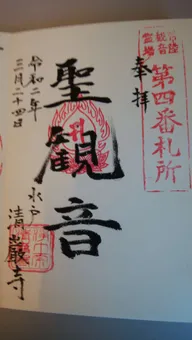 奉拝
常陸
観音
霊場
第四番札所
聖観音
令和二年
三月二十四日
水戸
清巖寺